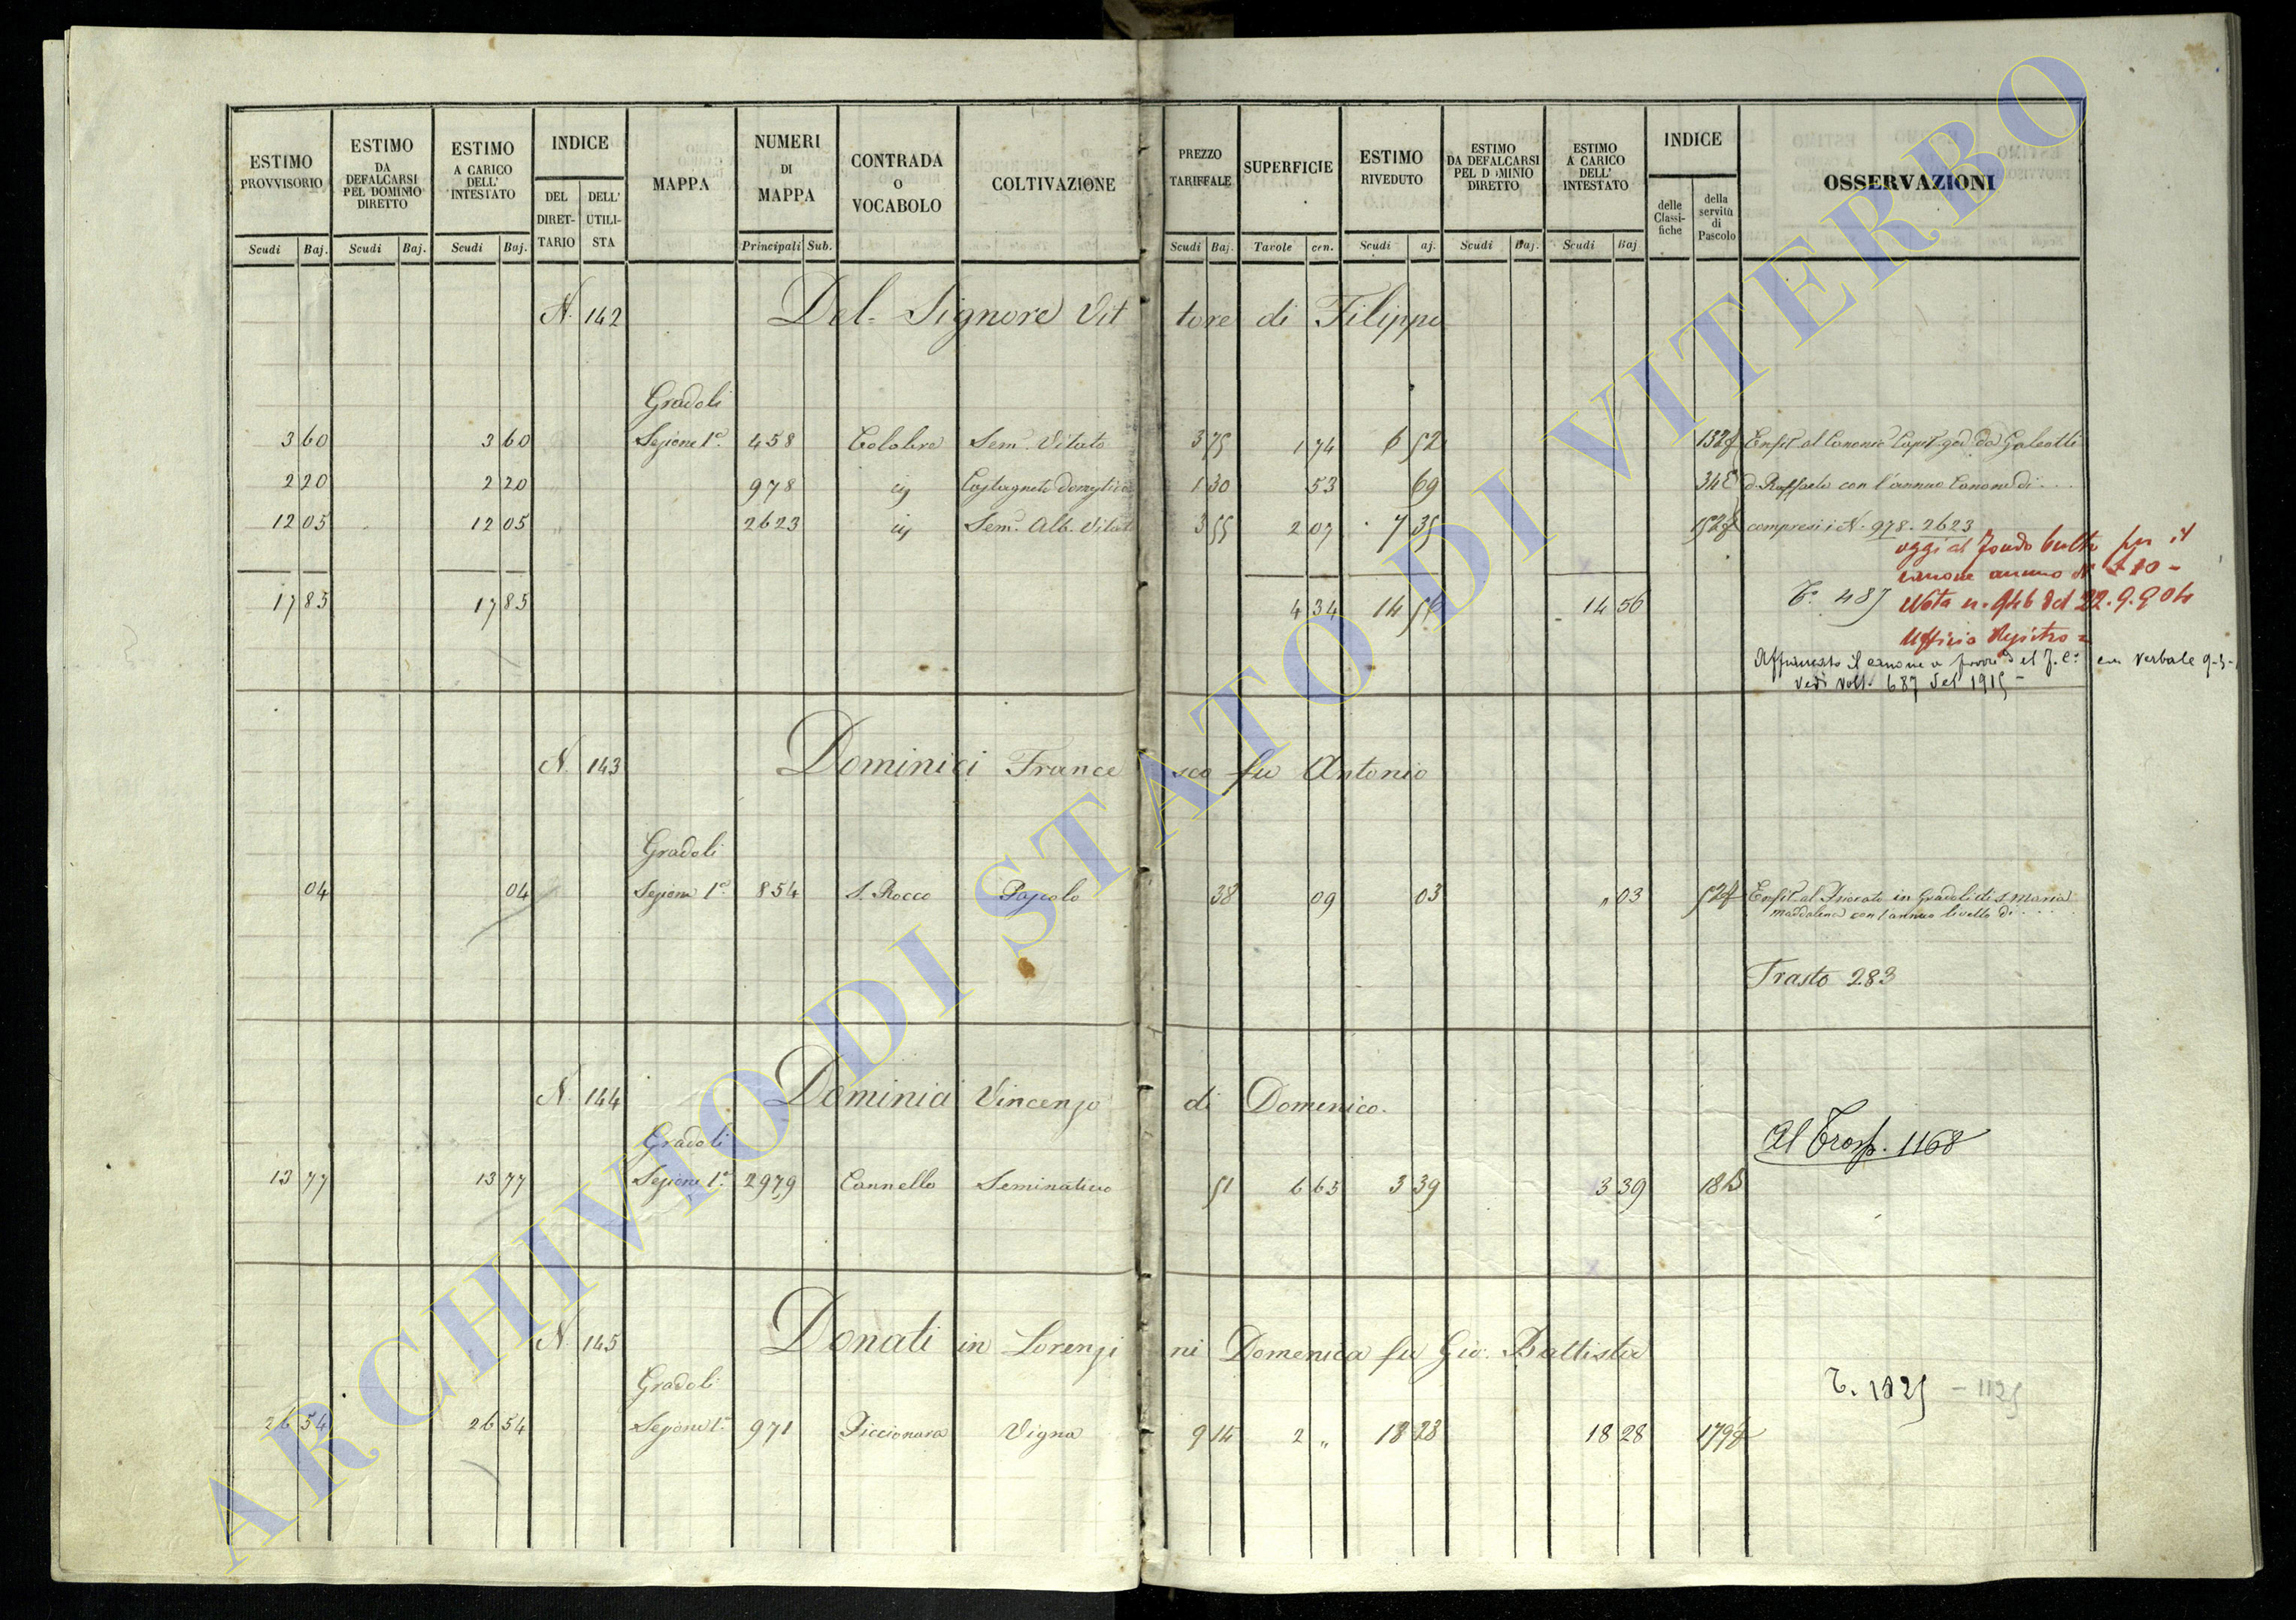 ESTIMO PROVVISORIO
ESTIMO DA DEFALCARSI PEL DOMINIO DIRETTO
ESTIMO A CARICO DELL' INTESTATO
INDICE
DEL DIRET-TARIO
DELL' UTILI-STA
MAPPA
NUMERI DI MAPPA
CONTRADA O VOCABOLO
COLTIVAZIONE
PREZZO TARIFFALE
SUPERFICIE
ESTIMO RIVEDUTO
ESTIMO DA DEFALCARSI PEL DOMINIO DIRETTO
ESTIMO A CARICO DELL' INTESTATO
INDICE
delle Classi-fiche
della servitù di Pascolo
OSSERVAZIONI
Scudi Baj. Scudi Baj. Scudi Baj. Principali Sub. Scudi Baj. Tavole cen. Scudi aj. Scudi Baj. Scudi Baj
N. 142 Del Signore Vittore di Filippo
Gradoli
3 60 3 60 Sezione 1ª 458 Sem. Vitato 3 75 1 74 6 52
2 20 2 20 978 1 30 53 69 d. Raffaele con l'annuo Canone di . . .
12 05 12 05 2623 Sem. Alb. Vitat 3 55 2 07 7 35 compresi i N. 978. 2623
oggi al Fondo Culto per il
canone annuo di
17 85 17 85 4 34 14 56 14 56 T. 487
Nota n. 946 del 22.9.904
Ufficio Registro
Affrancato il canone a favore del F. C. con Verbale
Vedi Vol. 687 del 1915
N. 143 Dominici Francesco fu Antonio
Gradoli
04 04 Sezione 1ª 854 S. Rocco Pascolo 38 09 03 " 03 52f Enfit. al Priorato in Gradoli di S. Maria
Maddalena con l'annuo livello di . . . .
Trasto 283
N. 144 Dominici Vincenzo di Domenico.
Gradoli
Al Trasp. 1168
13 77 13 77 Sezione 1ª 2979 Cannello Seminativo 51 6 65 3 39 3 39 18B
N. 145 Donati in Lorenzini Domenica fu Gio. Battista
Gradoli
T. 1825 - 1125
26 54 26 54 Sezione 1ª 971 Piccionara Vigna 9 14 2 " 18 28 18 28 179f
ARCHIVIO DI STATO DI VITERBO